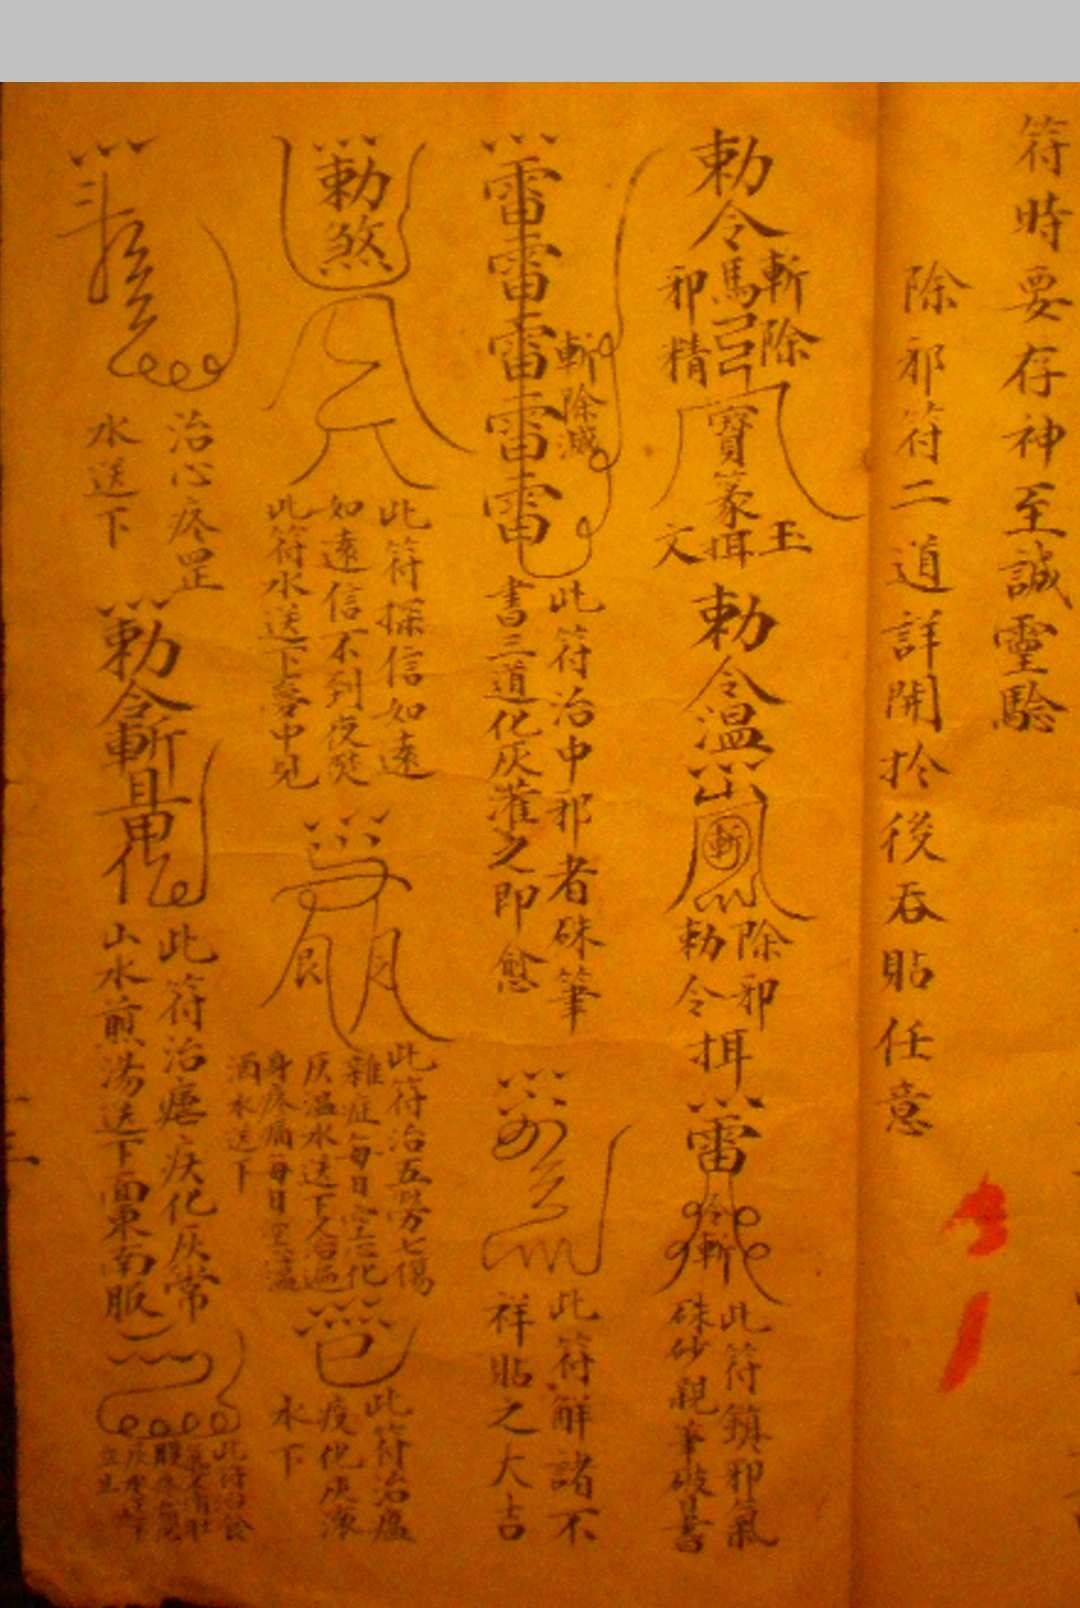 符時要存神至誠靈驗
除邪符二道詳開扵後吞貼任意
勅令馬
斬除
邪精
寶篆
玉
揖
文
勅令溫
斬
除邪
勅令
雷
令斬
此符鎮邪氣
硃砂親筆
書
雷雷雷雷雷
斬除滅
此符治中邪者硃筆
書三道化灰灌之即愈
此符解諸不
祥貼之大吉
勅煞
此符探信如遠
如遠信不到夜焚
此符水送下夢中見
此符治五勞七傷
雜症每日空心化
灰溫水送下又治遍
身疼痛每日空心溫
酒水送下
此符治瘟
疫化灰凉
水下
治心疼罡
水送下
勅令斬
此符治瘧疾化灰常
山水煎湯送下面東南服
此符治